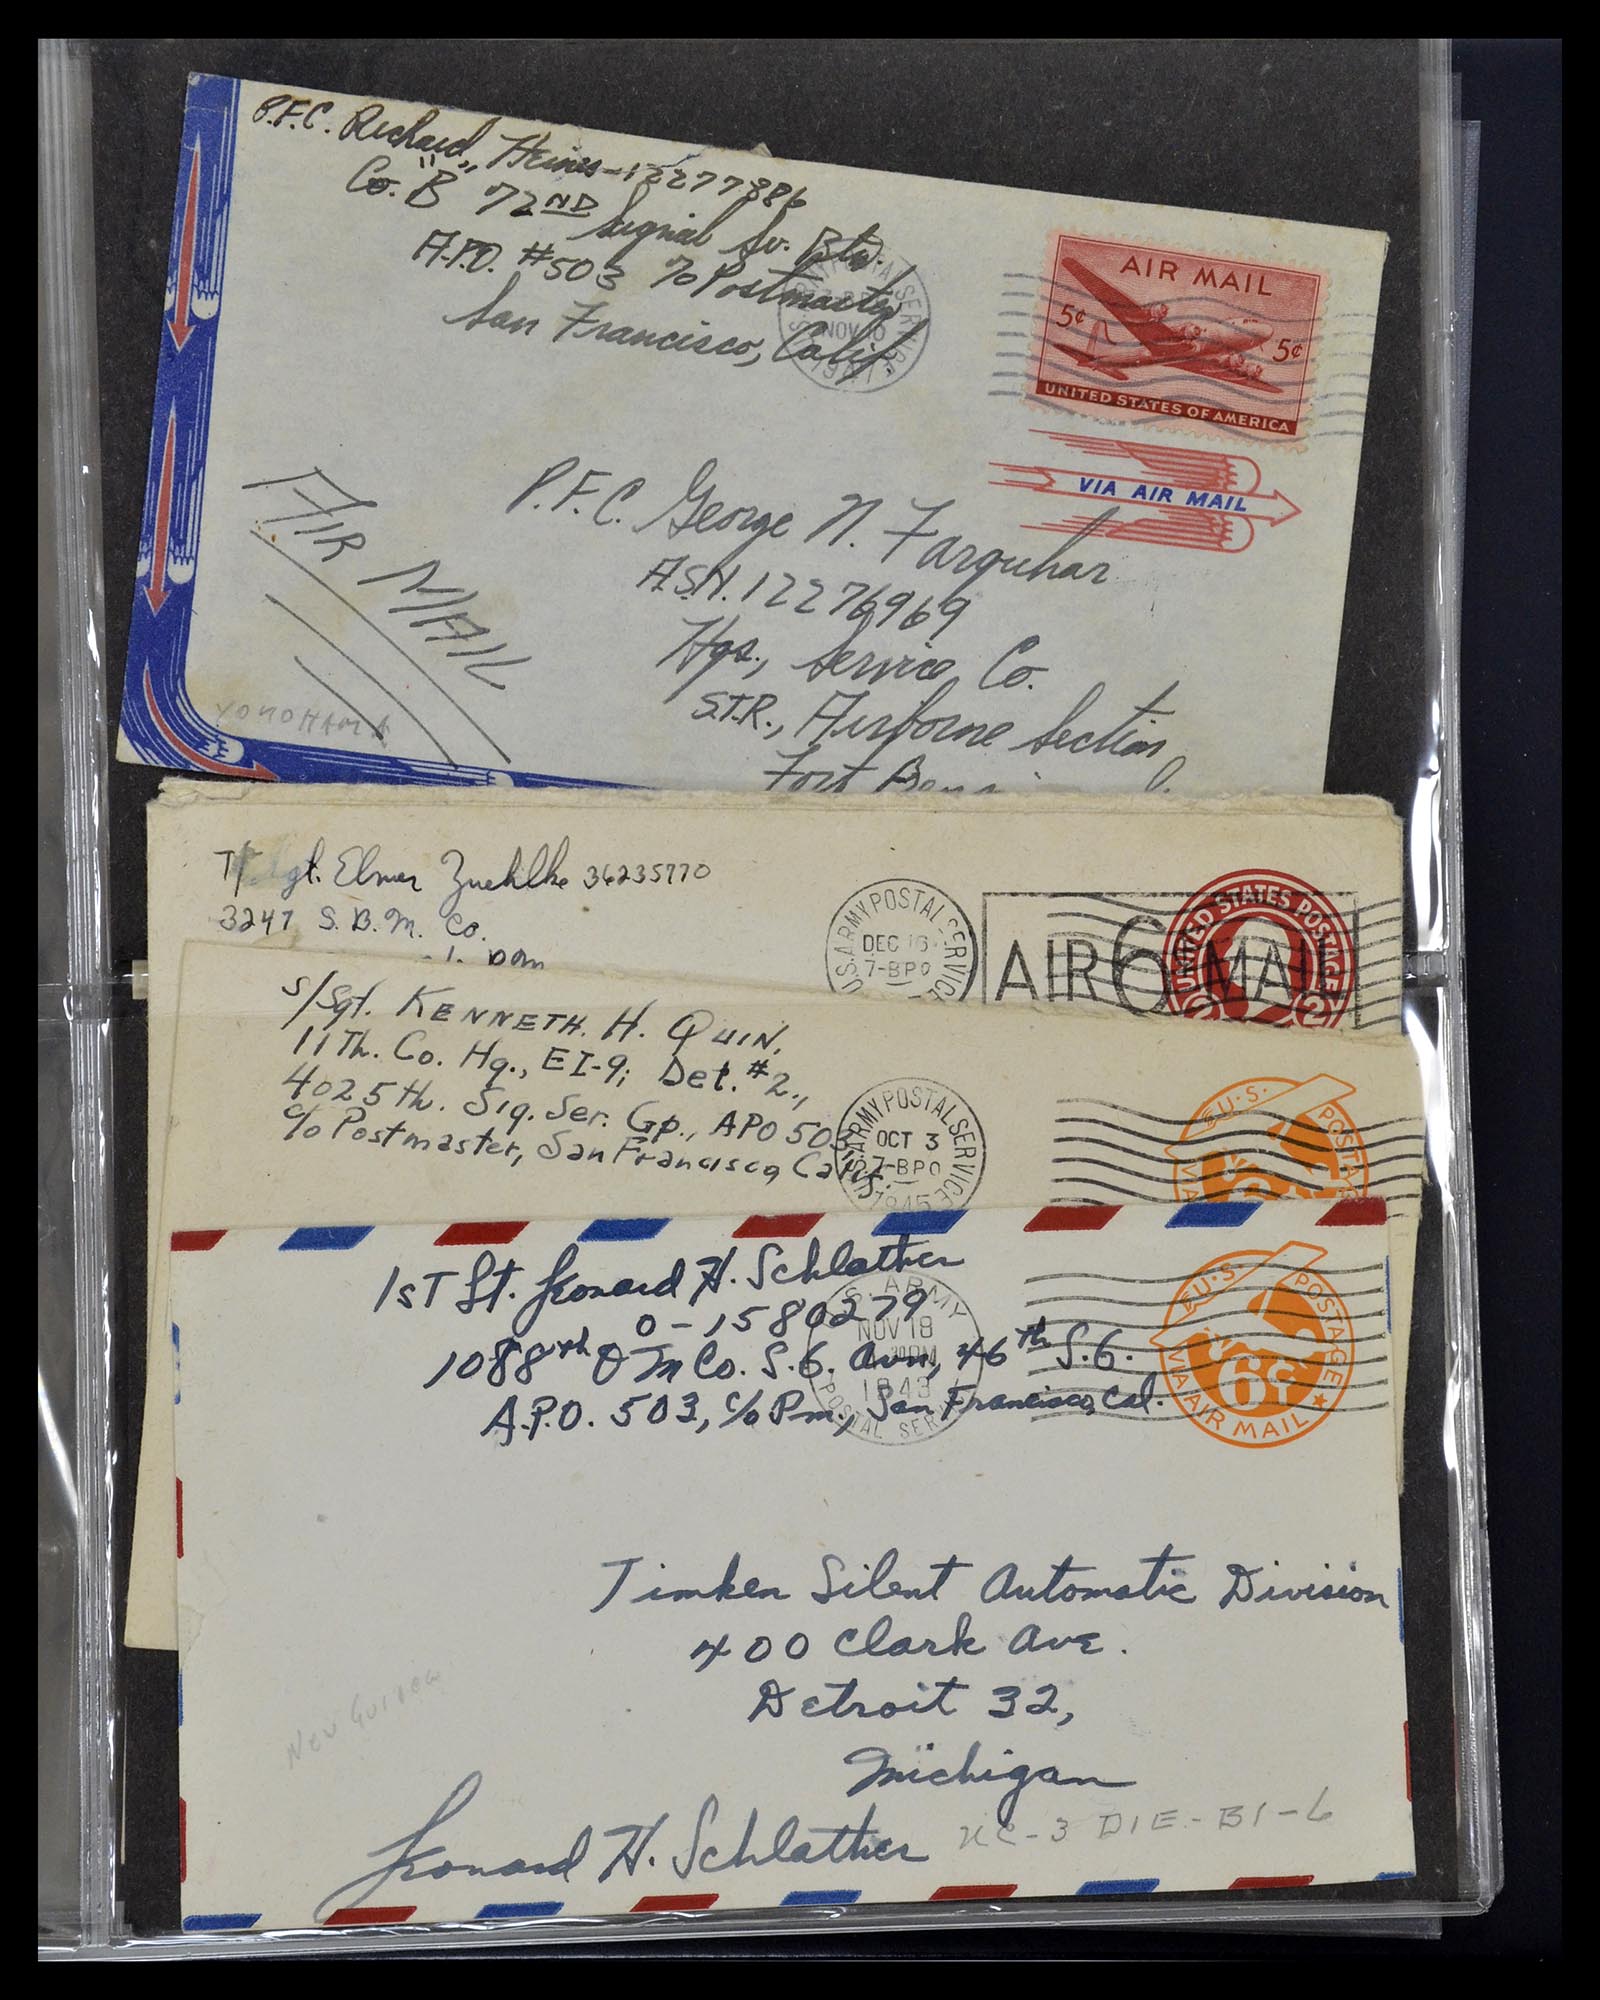 P.F.C. Richard Heines-12277886
Co. "B" 72ND Signal Sv. Btn.
A.P.O. #503 c/o Postmaster
San Francisco, Calif.
NOV 10
AIR MAIL
5¢ 5¢
UNITED STATES OF AMERICA
VIA AIR MAIL
AIR MAIL
P.F.C. George N. Farquhar
A.S.N. 12276969
Hqs., Service Co.
S.T.R., Airborne Section
Fort
YOKOHAMA
T/ gt. Elmer Zuehlke 36235770
3247 S.B.M. Co.
U.S. ARMY POSTAL SERVICE
DEC 16
7-BPO
AIR 6 MAIL
UNITED STATES POSTAGE
2
S/Sgt. KENNETH. H. QUIN,
11Th. Co. Hq., EI-9; Det. #2.,
4025th. Sig. Ser. Gp., APO 503
c/o Postmaster, San Francisco, Calif.
U.S. ARMY POSTAL SERVICE
OCT 3
7-BPO
1945
U.S. POSTAGE
VIA
1sT Lt. Leonard H. Schlather
O-1580279
1088th QM Co. S.G. Avn, 46th S.G.
A.P.O. 503, c/o Pm, San Francisco, Cal.
U.S. ARMY
NOV 18
PM
1943
POSTAL SERV
U.S. POSTAGE
6¢
VIA AIR MAIL
Timken Silent Automatic Division
400 Clark Ave.
Detroit 32,
Michigan
New Guinea
Leonard H. Schlather
UC-3 DIE-B1-6